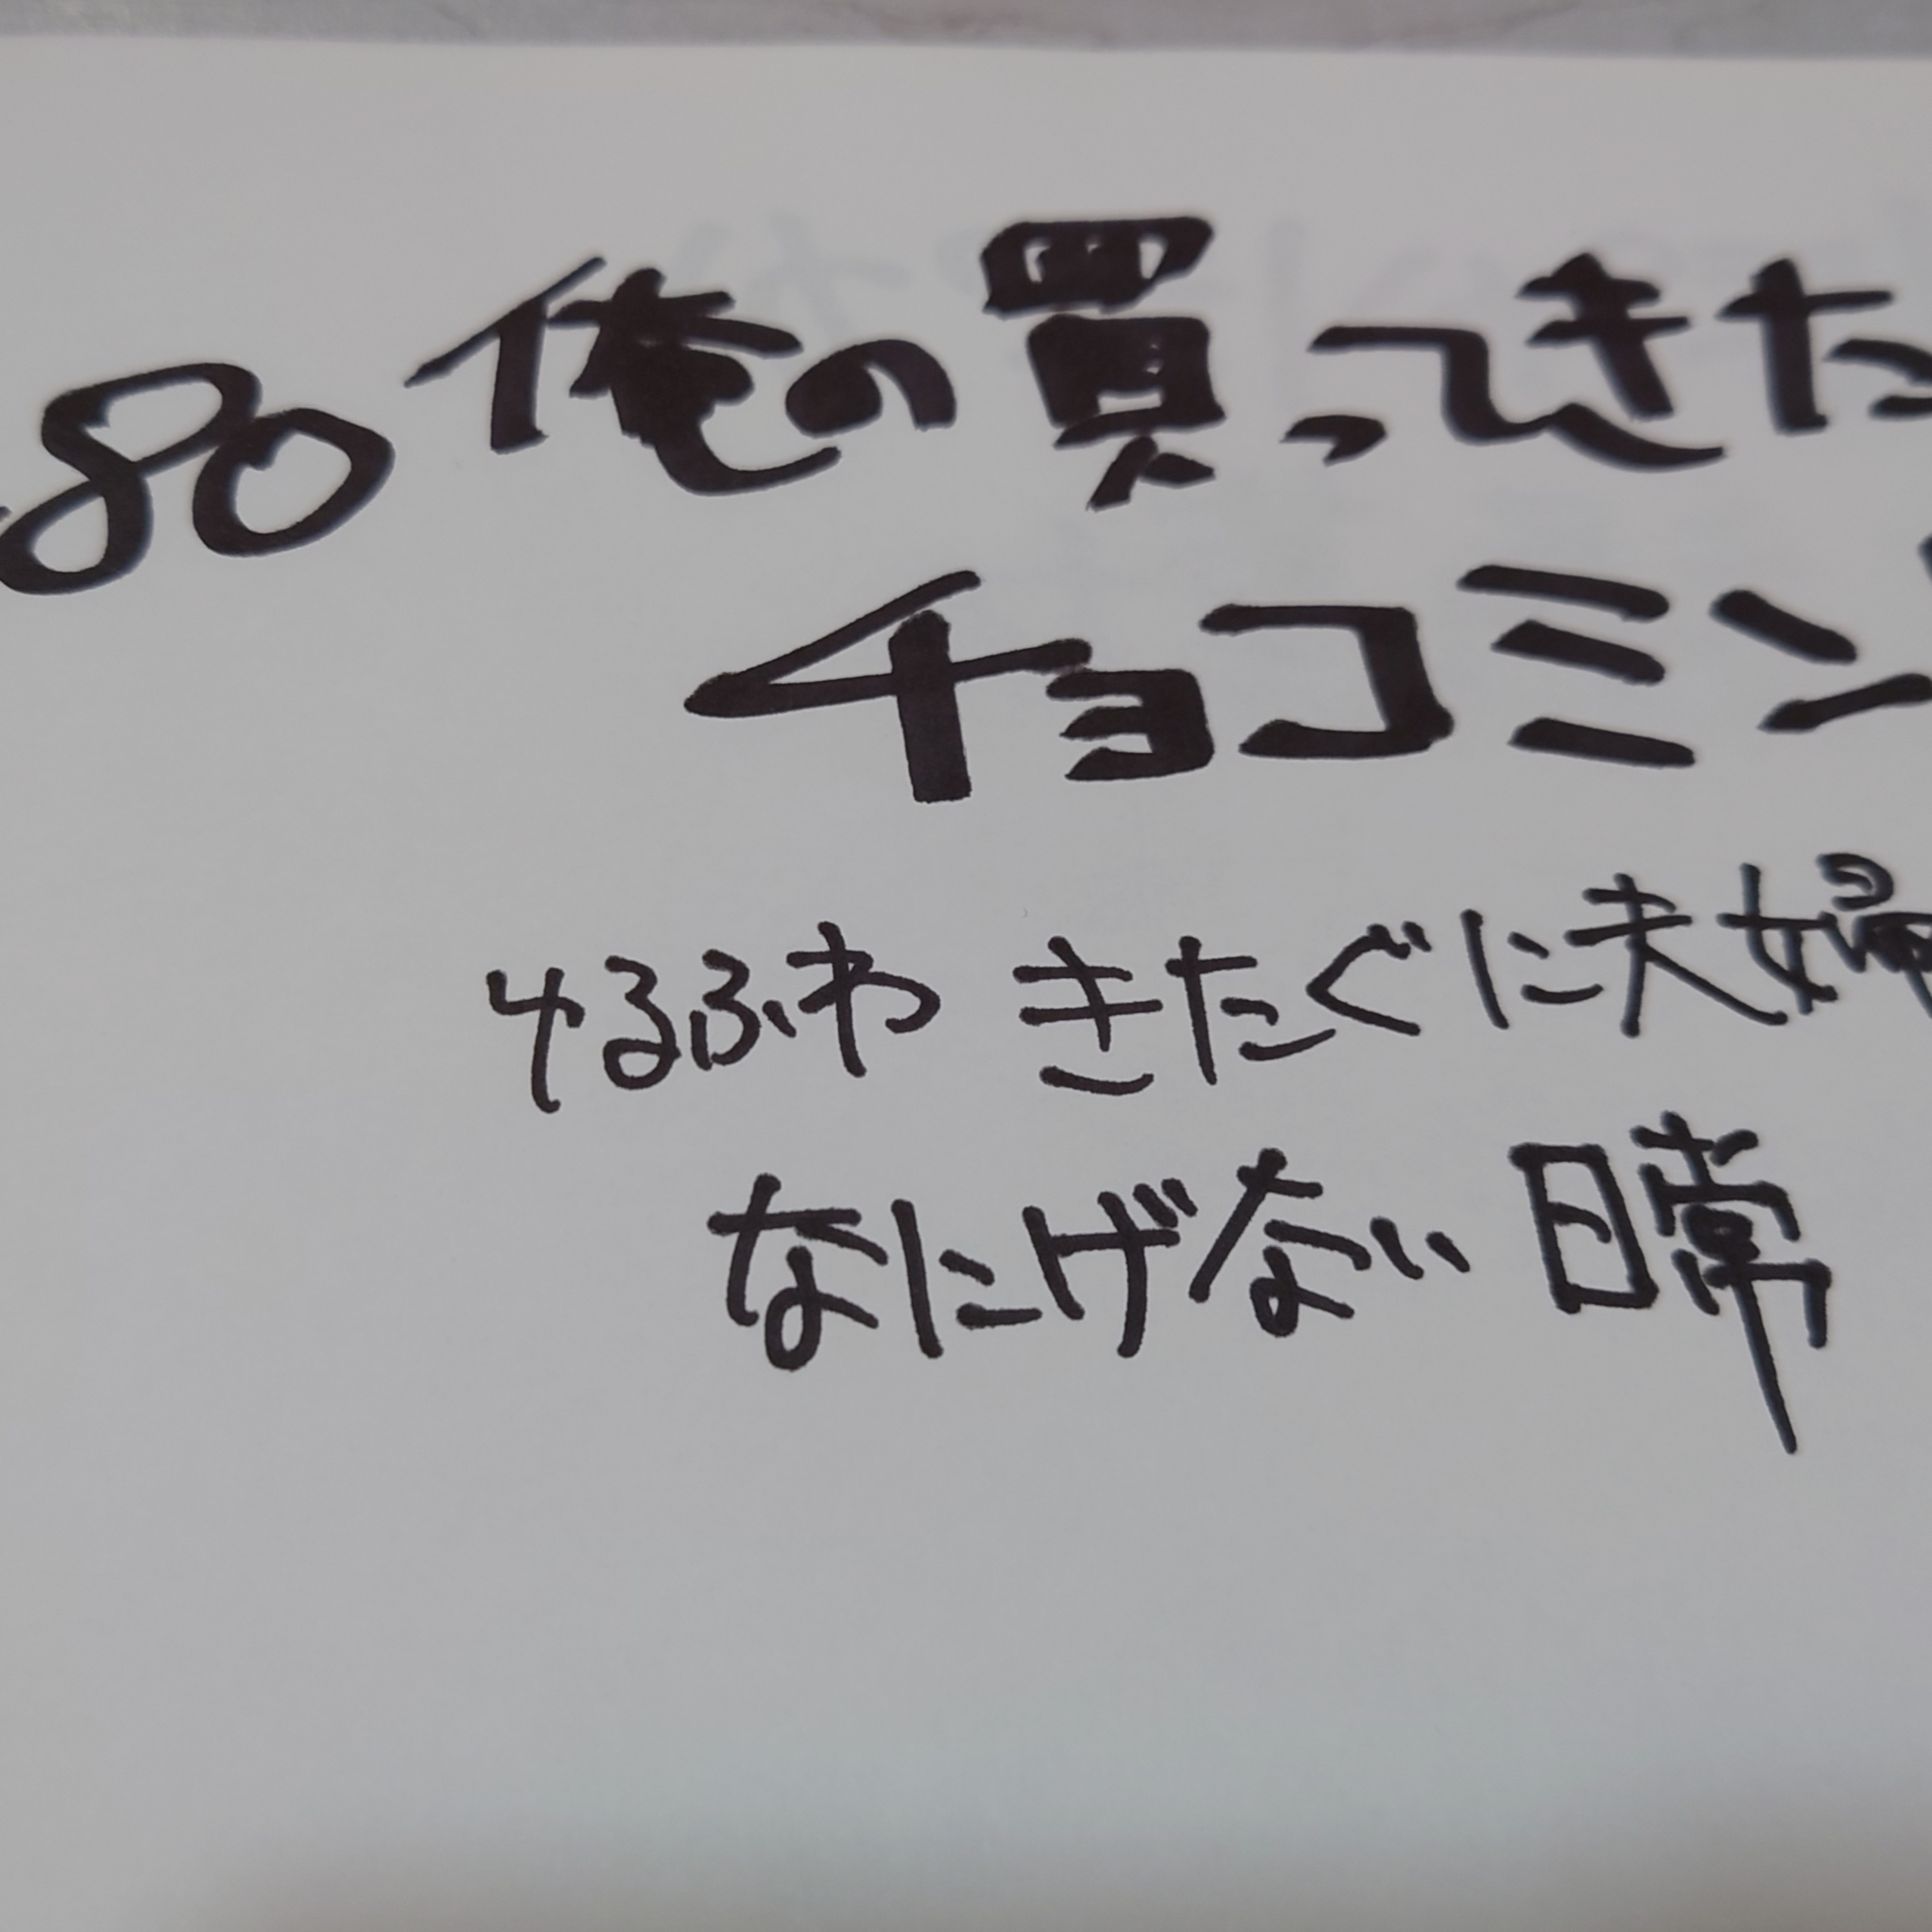 80 俺の買ってきた
チョコミン
ゆるふわ きたぐに夫婦
なにげない日常